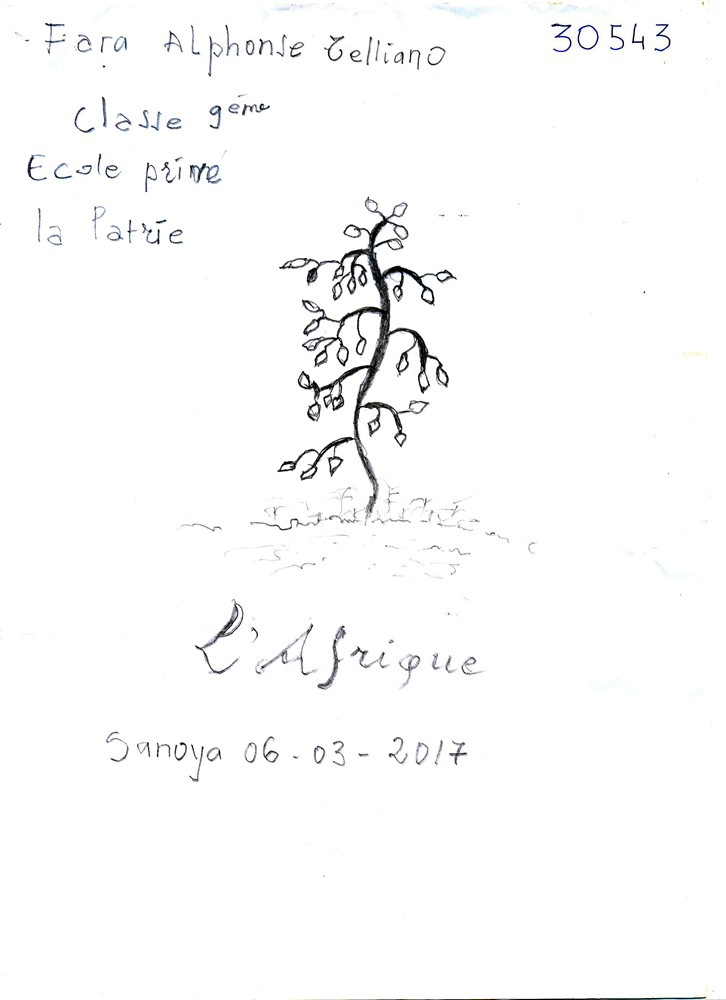 Fara Alphonse Telliano
30543
Classe 9éme
Ecole prive
la Patrie
L'Afrique
Sanoya 06-03-2017